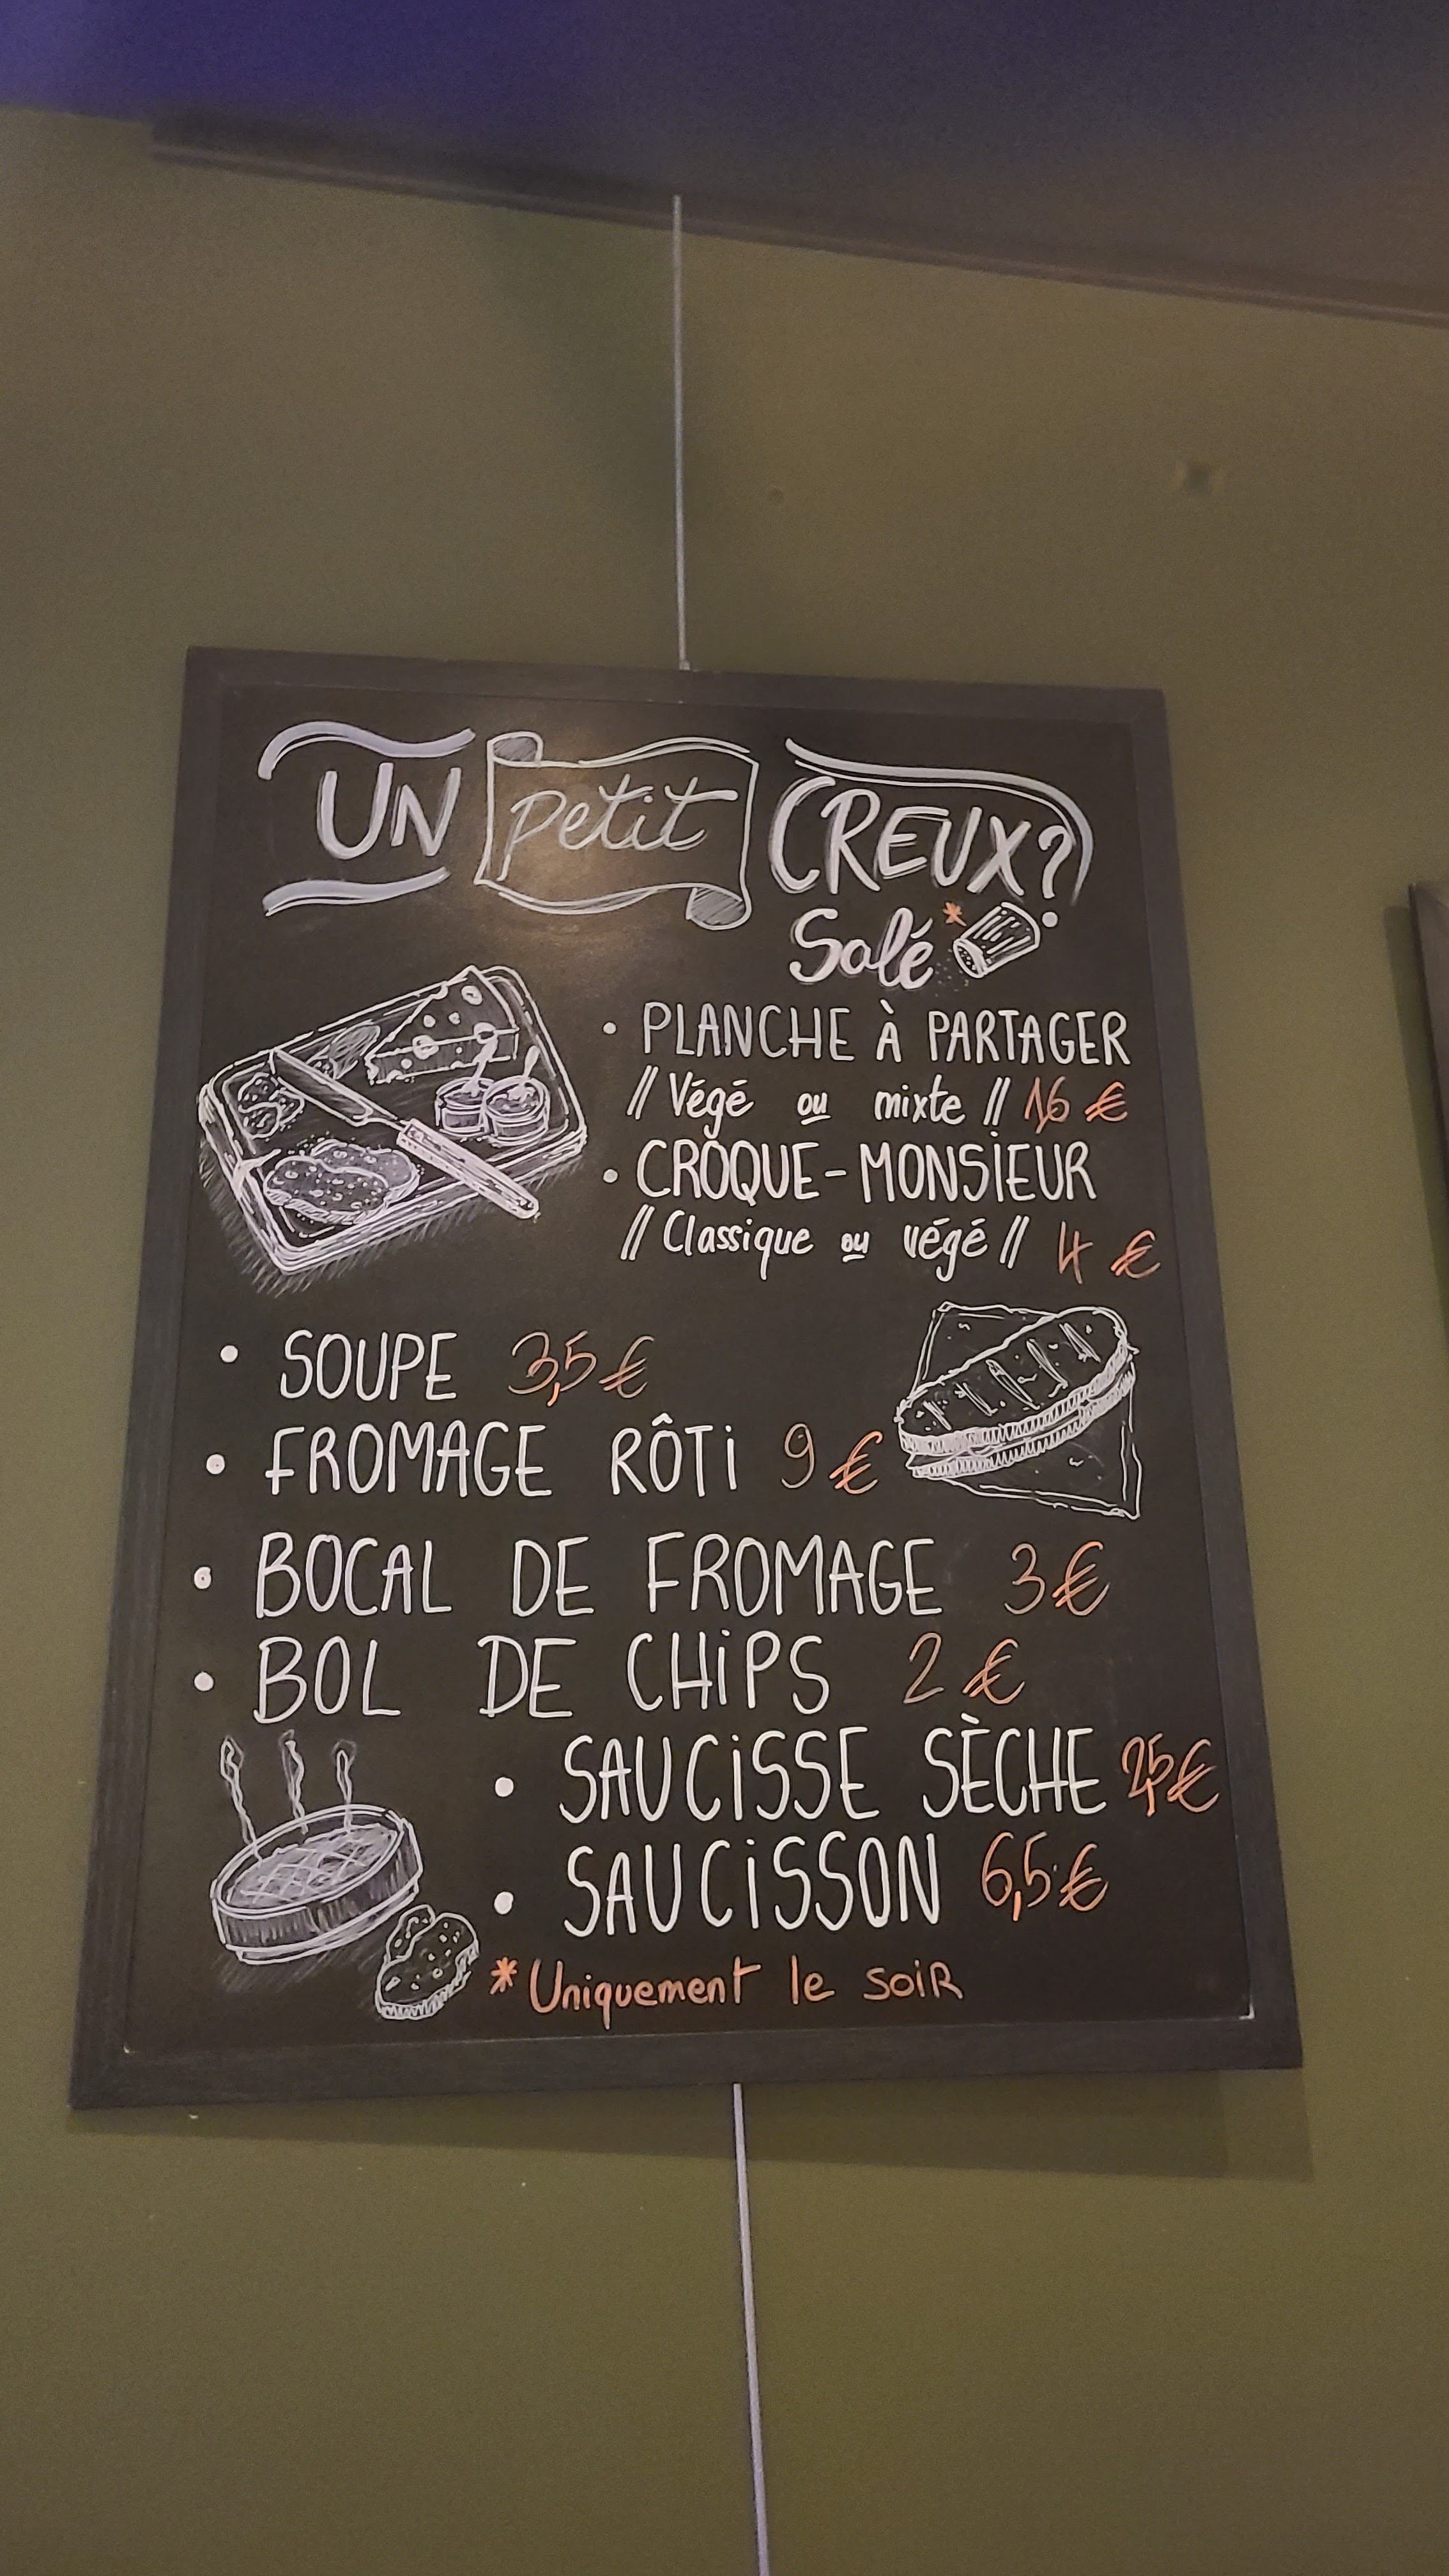 UN petit CREUX?
Salé*
• PLANCHE À PARTAGER
// Végé ou mixte // 16 €
• CROQUE-MONSIEUR
// Classique ou végé // 4 €
• SOUPE 3,5 €
• FROMAGE RÔTI 9 €
• BOCAL DE FROMAGE 3 €
• BOL DE CHIPS 2 €
• SAUCISSE SÈCHE 2,5 €
• SAUCISSON 6,5 €
*Uniquement le soir